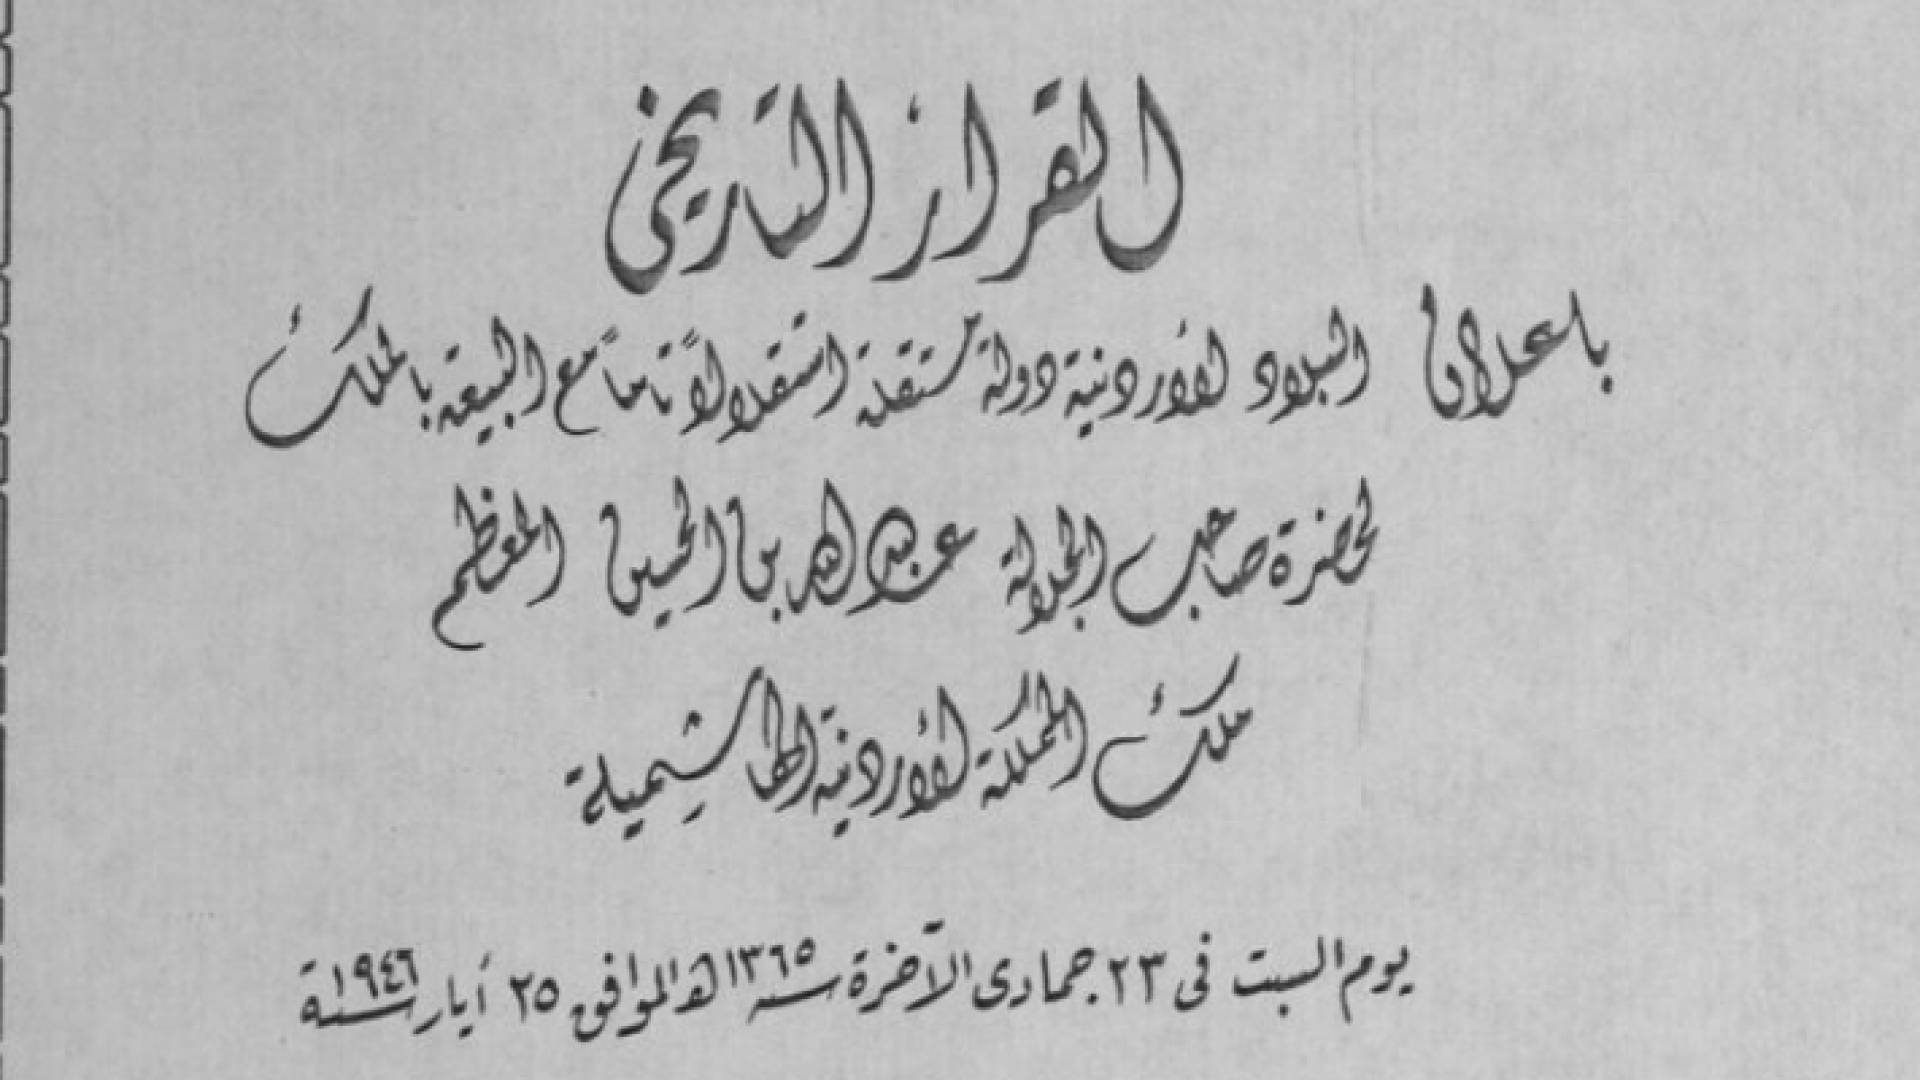 القرار التاريخي
باعلان البلاد الأردنية دولة مستقلة استقلالاً تاماً مع البيعة بالملك
لحضرة صاحب الجلالة عبد الله بن الحسين المعظم
ملك المملكة الأردنية الهاشمية
يوم السبت في ٢٣ جمادى الآخرة سنة ١٣٦٥ هـ الموافق ٢٥ أيار سنة ١٩٤٦